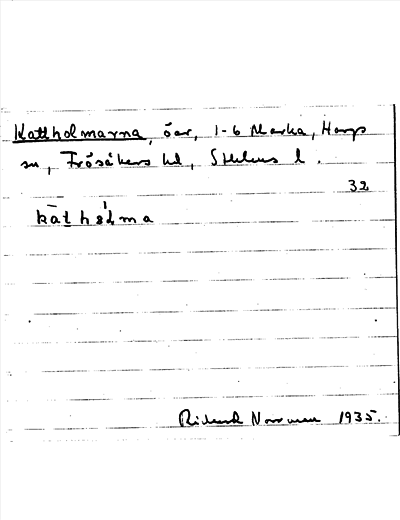 Kattholmarna, öar, 1-6 Marka, Hargs
sn, Frösåkers hd, Sthlms l.
32
katholma
Rickard Norrman 1935.